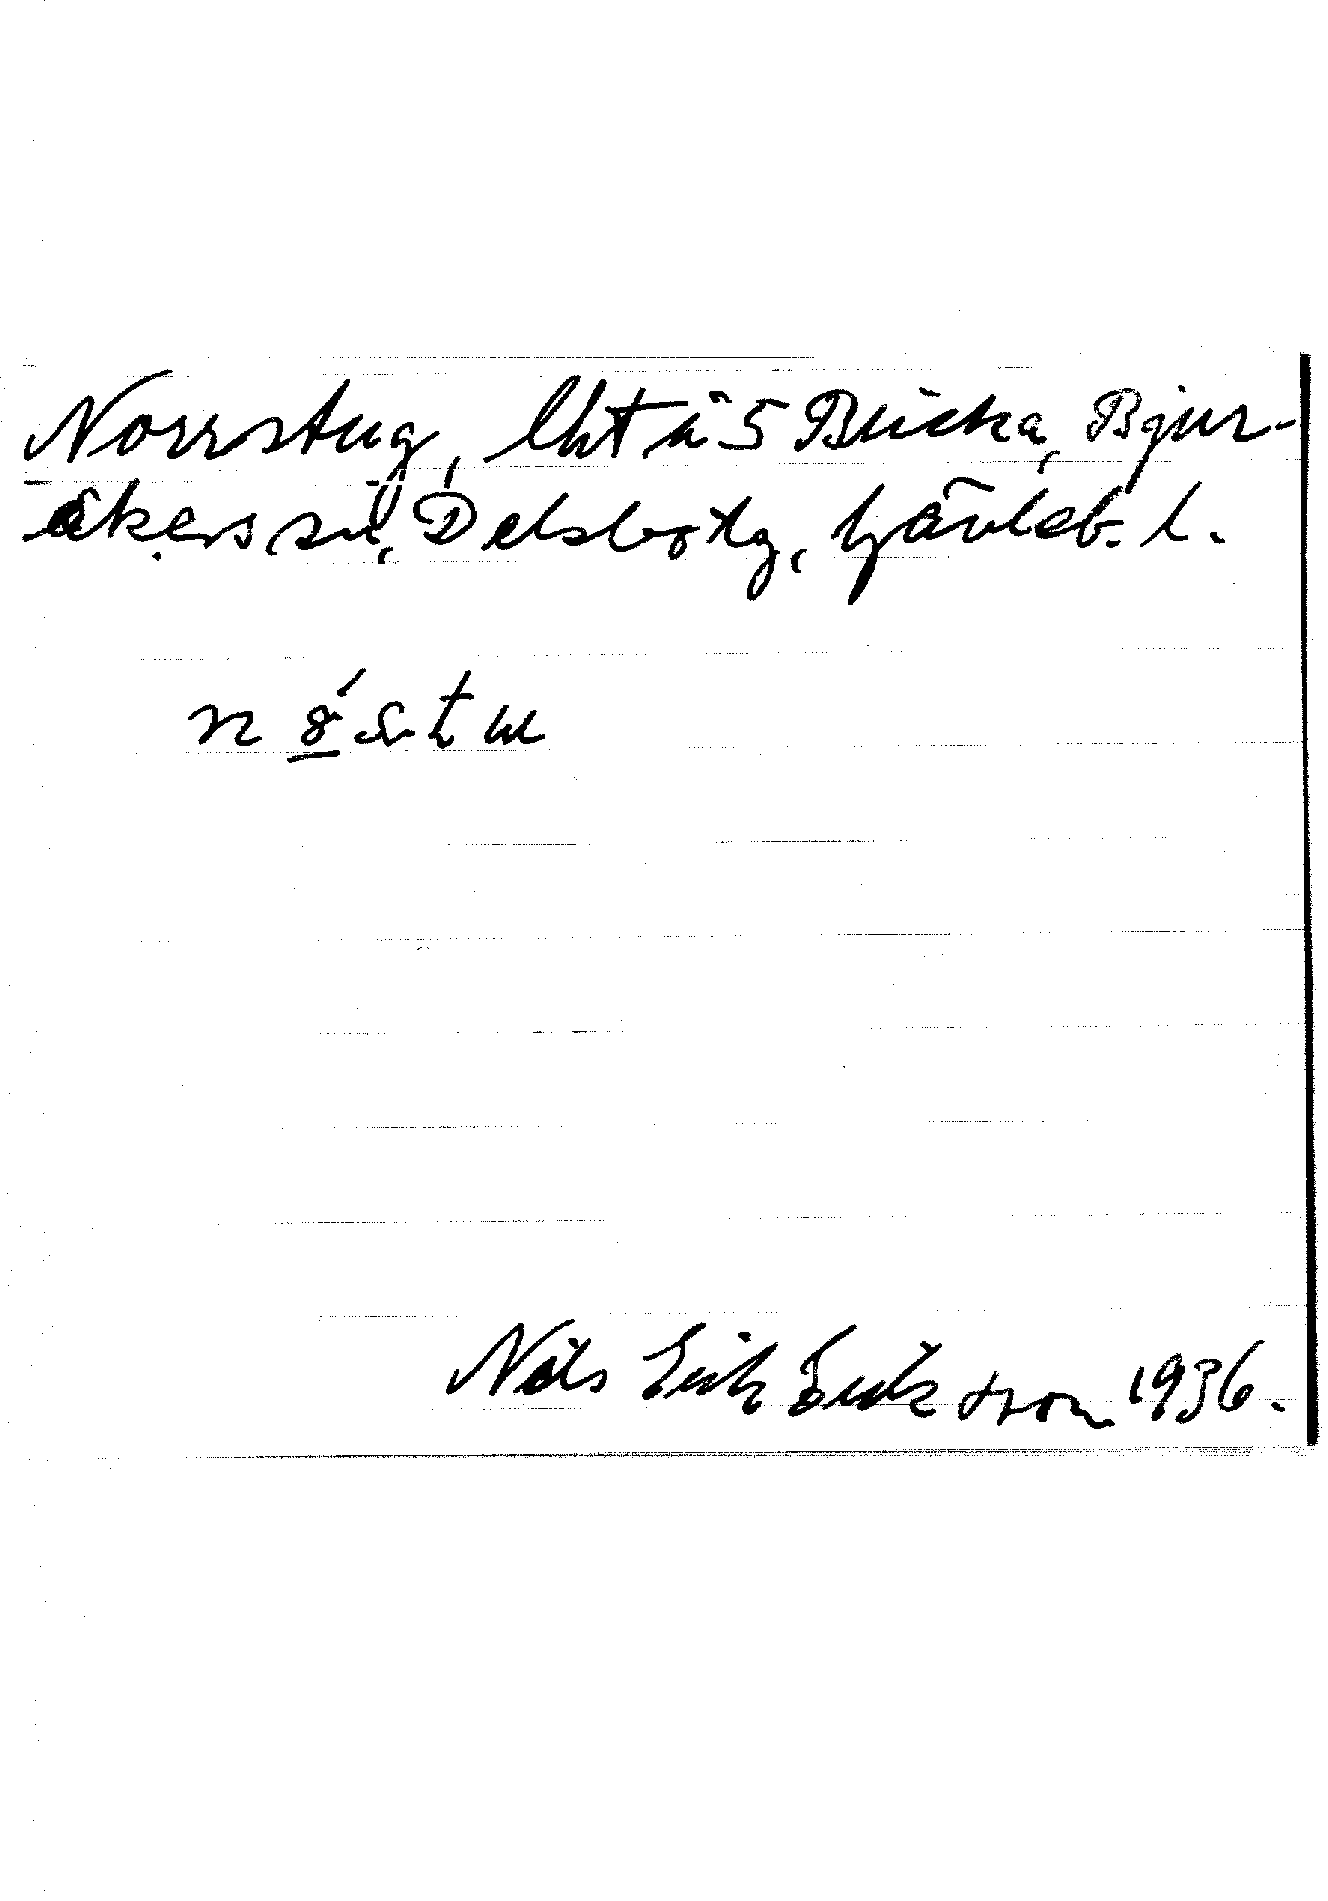 Norrstug, lht å 5 Bricka, Bjur-
åkers sn, Delsbo tg, Gävleb. l.
Nils Erik Erikstrom 1936.